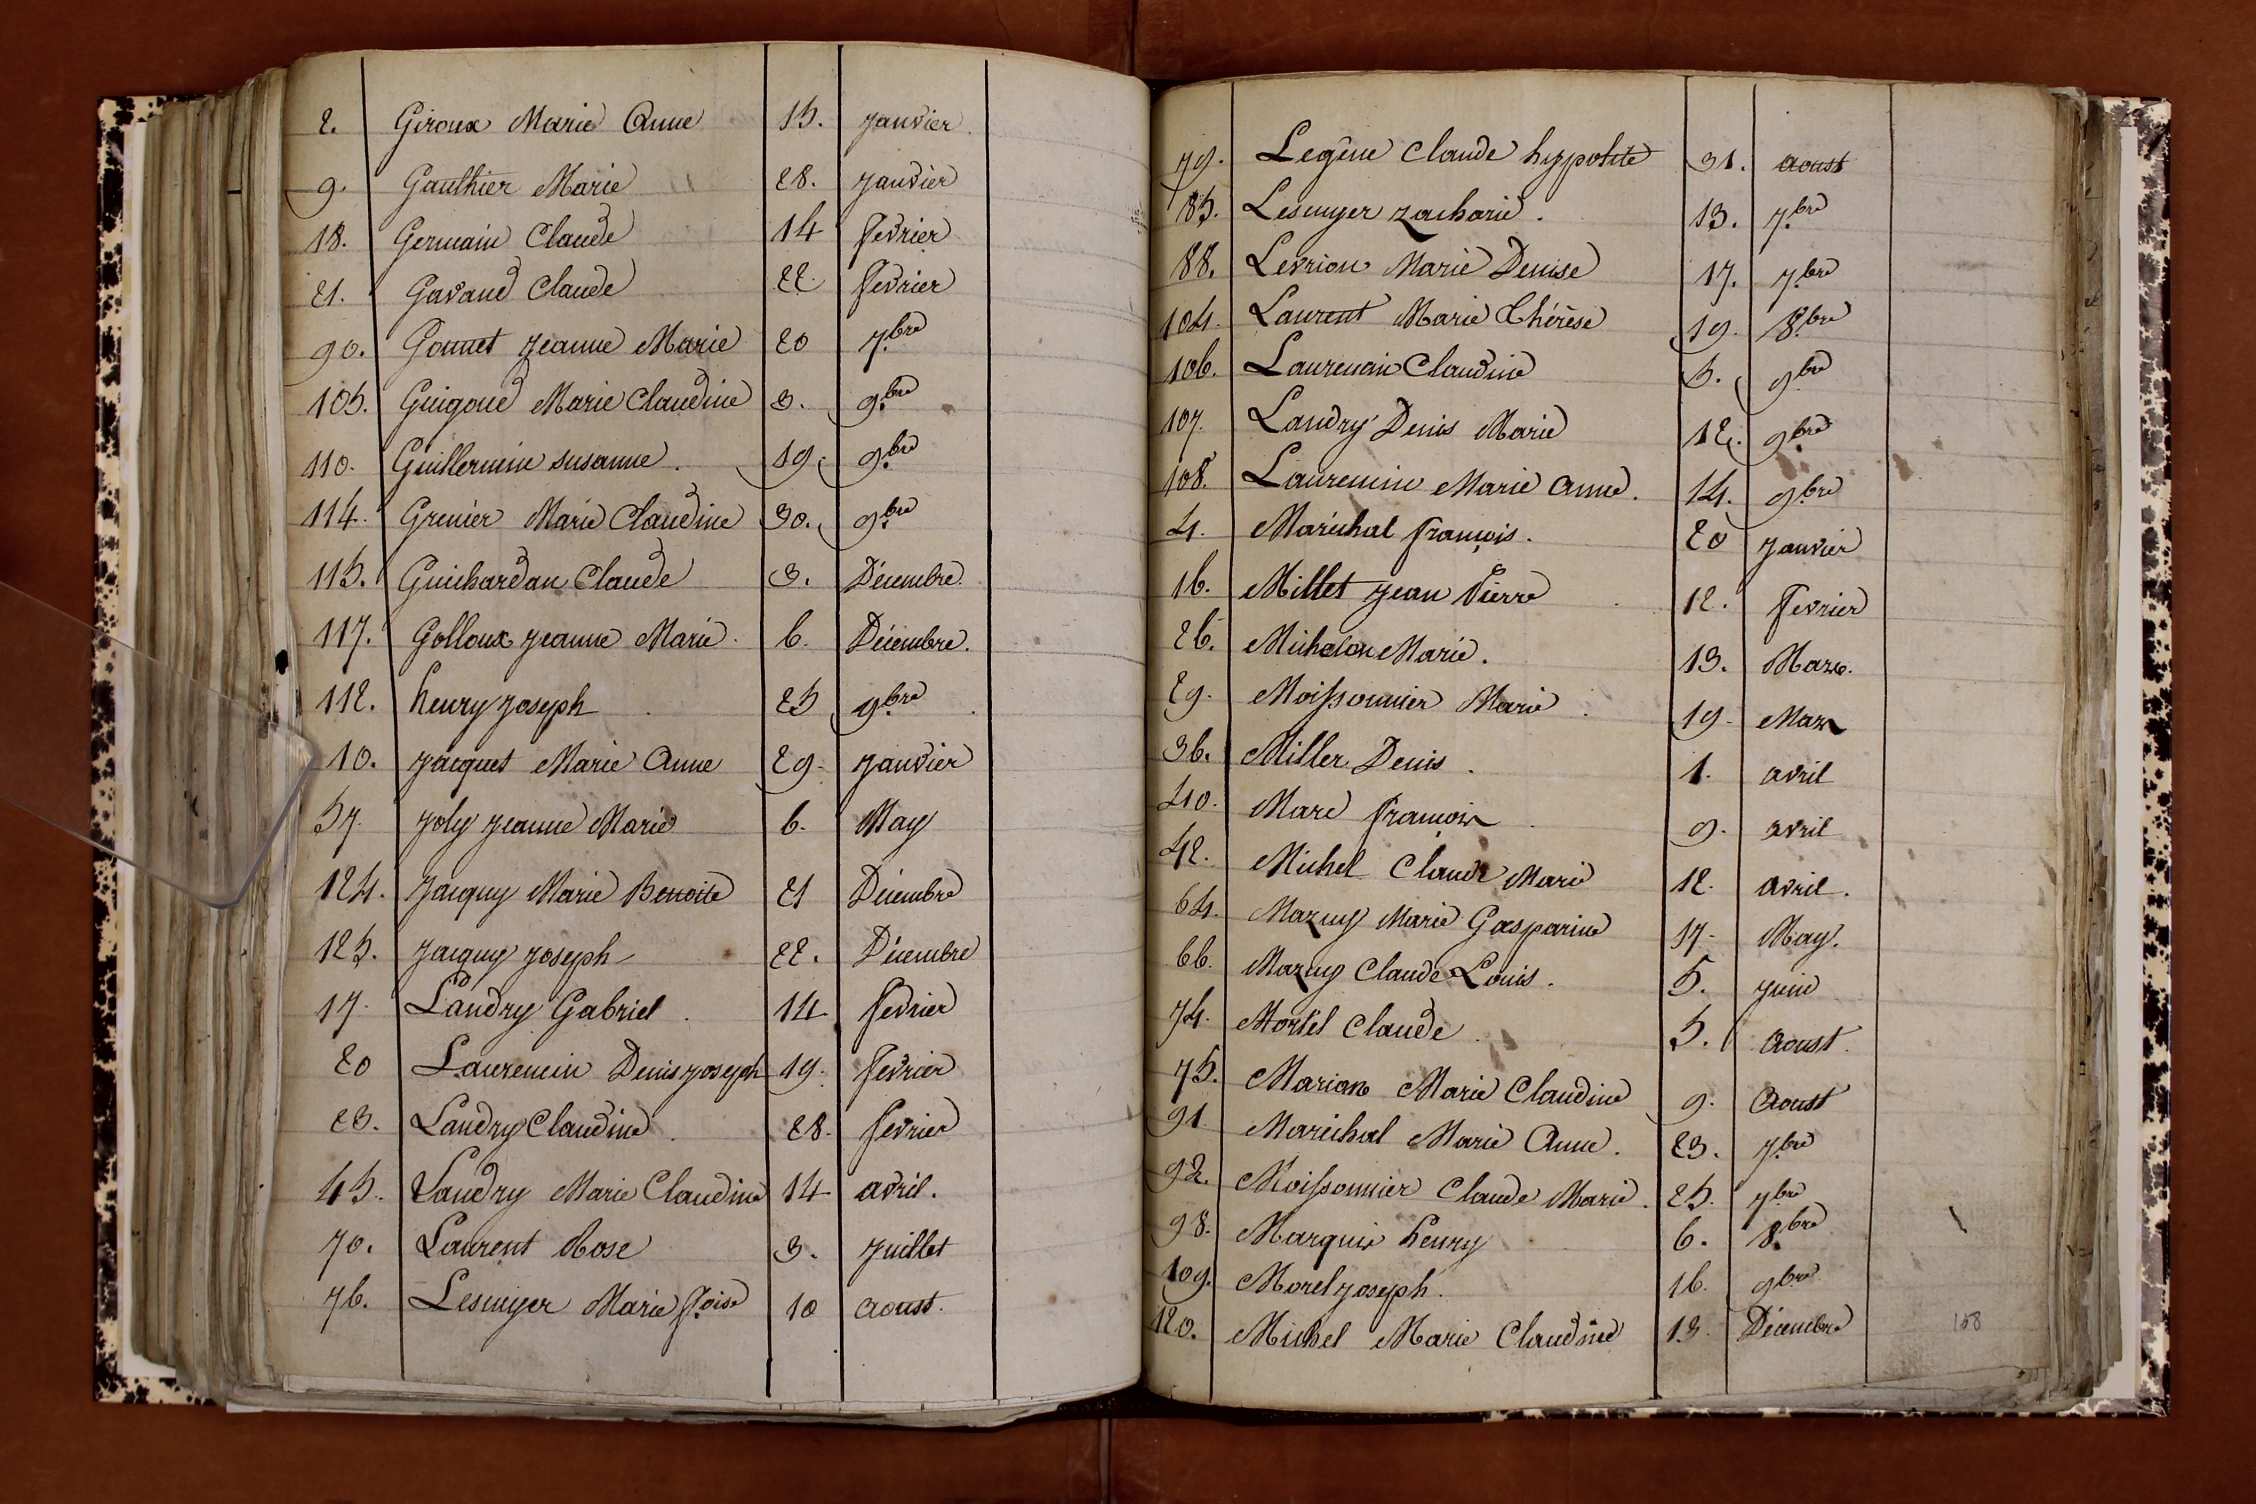 2. Giroux Marie Anne 15. Janvier
9. Gaulthier Marie 28. Janvier
18. Germain Claude 14 fevrier
21. Gavand Claude 22 fevrier
90. Gonnet Jeanne Marie 20 7.bre
105. Guigoud Marie Claudine 3. 9.bre
110. Guillermin susanne. 19. 9.bre
114. Grenier Marie Claudine 30. 9.bre
115. Guichardan Claude 3. Décembre
117. Golloux Jeanne Marie. 6. Décembre.
112. henry Joseph 25 9.bre
10. Jacquet Marie Anne 29. Janvier
57. Joly Jeanne Marie 6. May
124. Jacquy Marie Benoite 21 Décembre
125. Jacquy Joseph 22. Décembre
17. Landry Gabriel. 14 fevrier
20 Lauremin Denis Joseph 19. fevrier
23. Landry Claudine. 28. fevrier
45. Landry Marie Claudine 14 avril.
70. Laurent Rose 3. Juillet
76. Lesmyer Marie f.oise 10 aoust.
79. Legêne Claude hypolite 31. aoust
85. Lesmyer zacharie. 13. 7.bre
88. Levrion Marie Denise 17. 7.bre
104. Laurent Marie Thérèse 19. 8.bre
106. Lauremain Claudine 5. 9bre
107. Landry Denis Marie 12. 9.bre
108. Lauremin Marie Anne. 14. 9.bre
4. Maréchal françois. 20 Janvier
16. Millet Jean Pierre 12. fevrier
26. Michelon Marie. 13. Mars.
29. Moissonnier Marie. 19. Mars
36. Miller Denis. 1. avril
40. Marc françois 9. avril
42. Michel Claude Marie 12. avril.
64. Mazuy Marie Gasparine 17. May.
66. Mazuy Claude Louis. 5. Juin
74. Mortel Claude 5. Aoust.
75. Marian Marie Claudine 9. Aoust
91. Maréchal Marie Anne. 23. 7.bre
92. Moissonnier Claude Marie. 25. 7.bre
98. Marquis henry 6. 8.bre
109. Morel Joseph. 16. 9bre
120. Michel Marie Claudine 13. Décembre
108